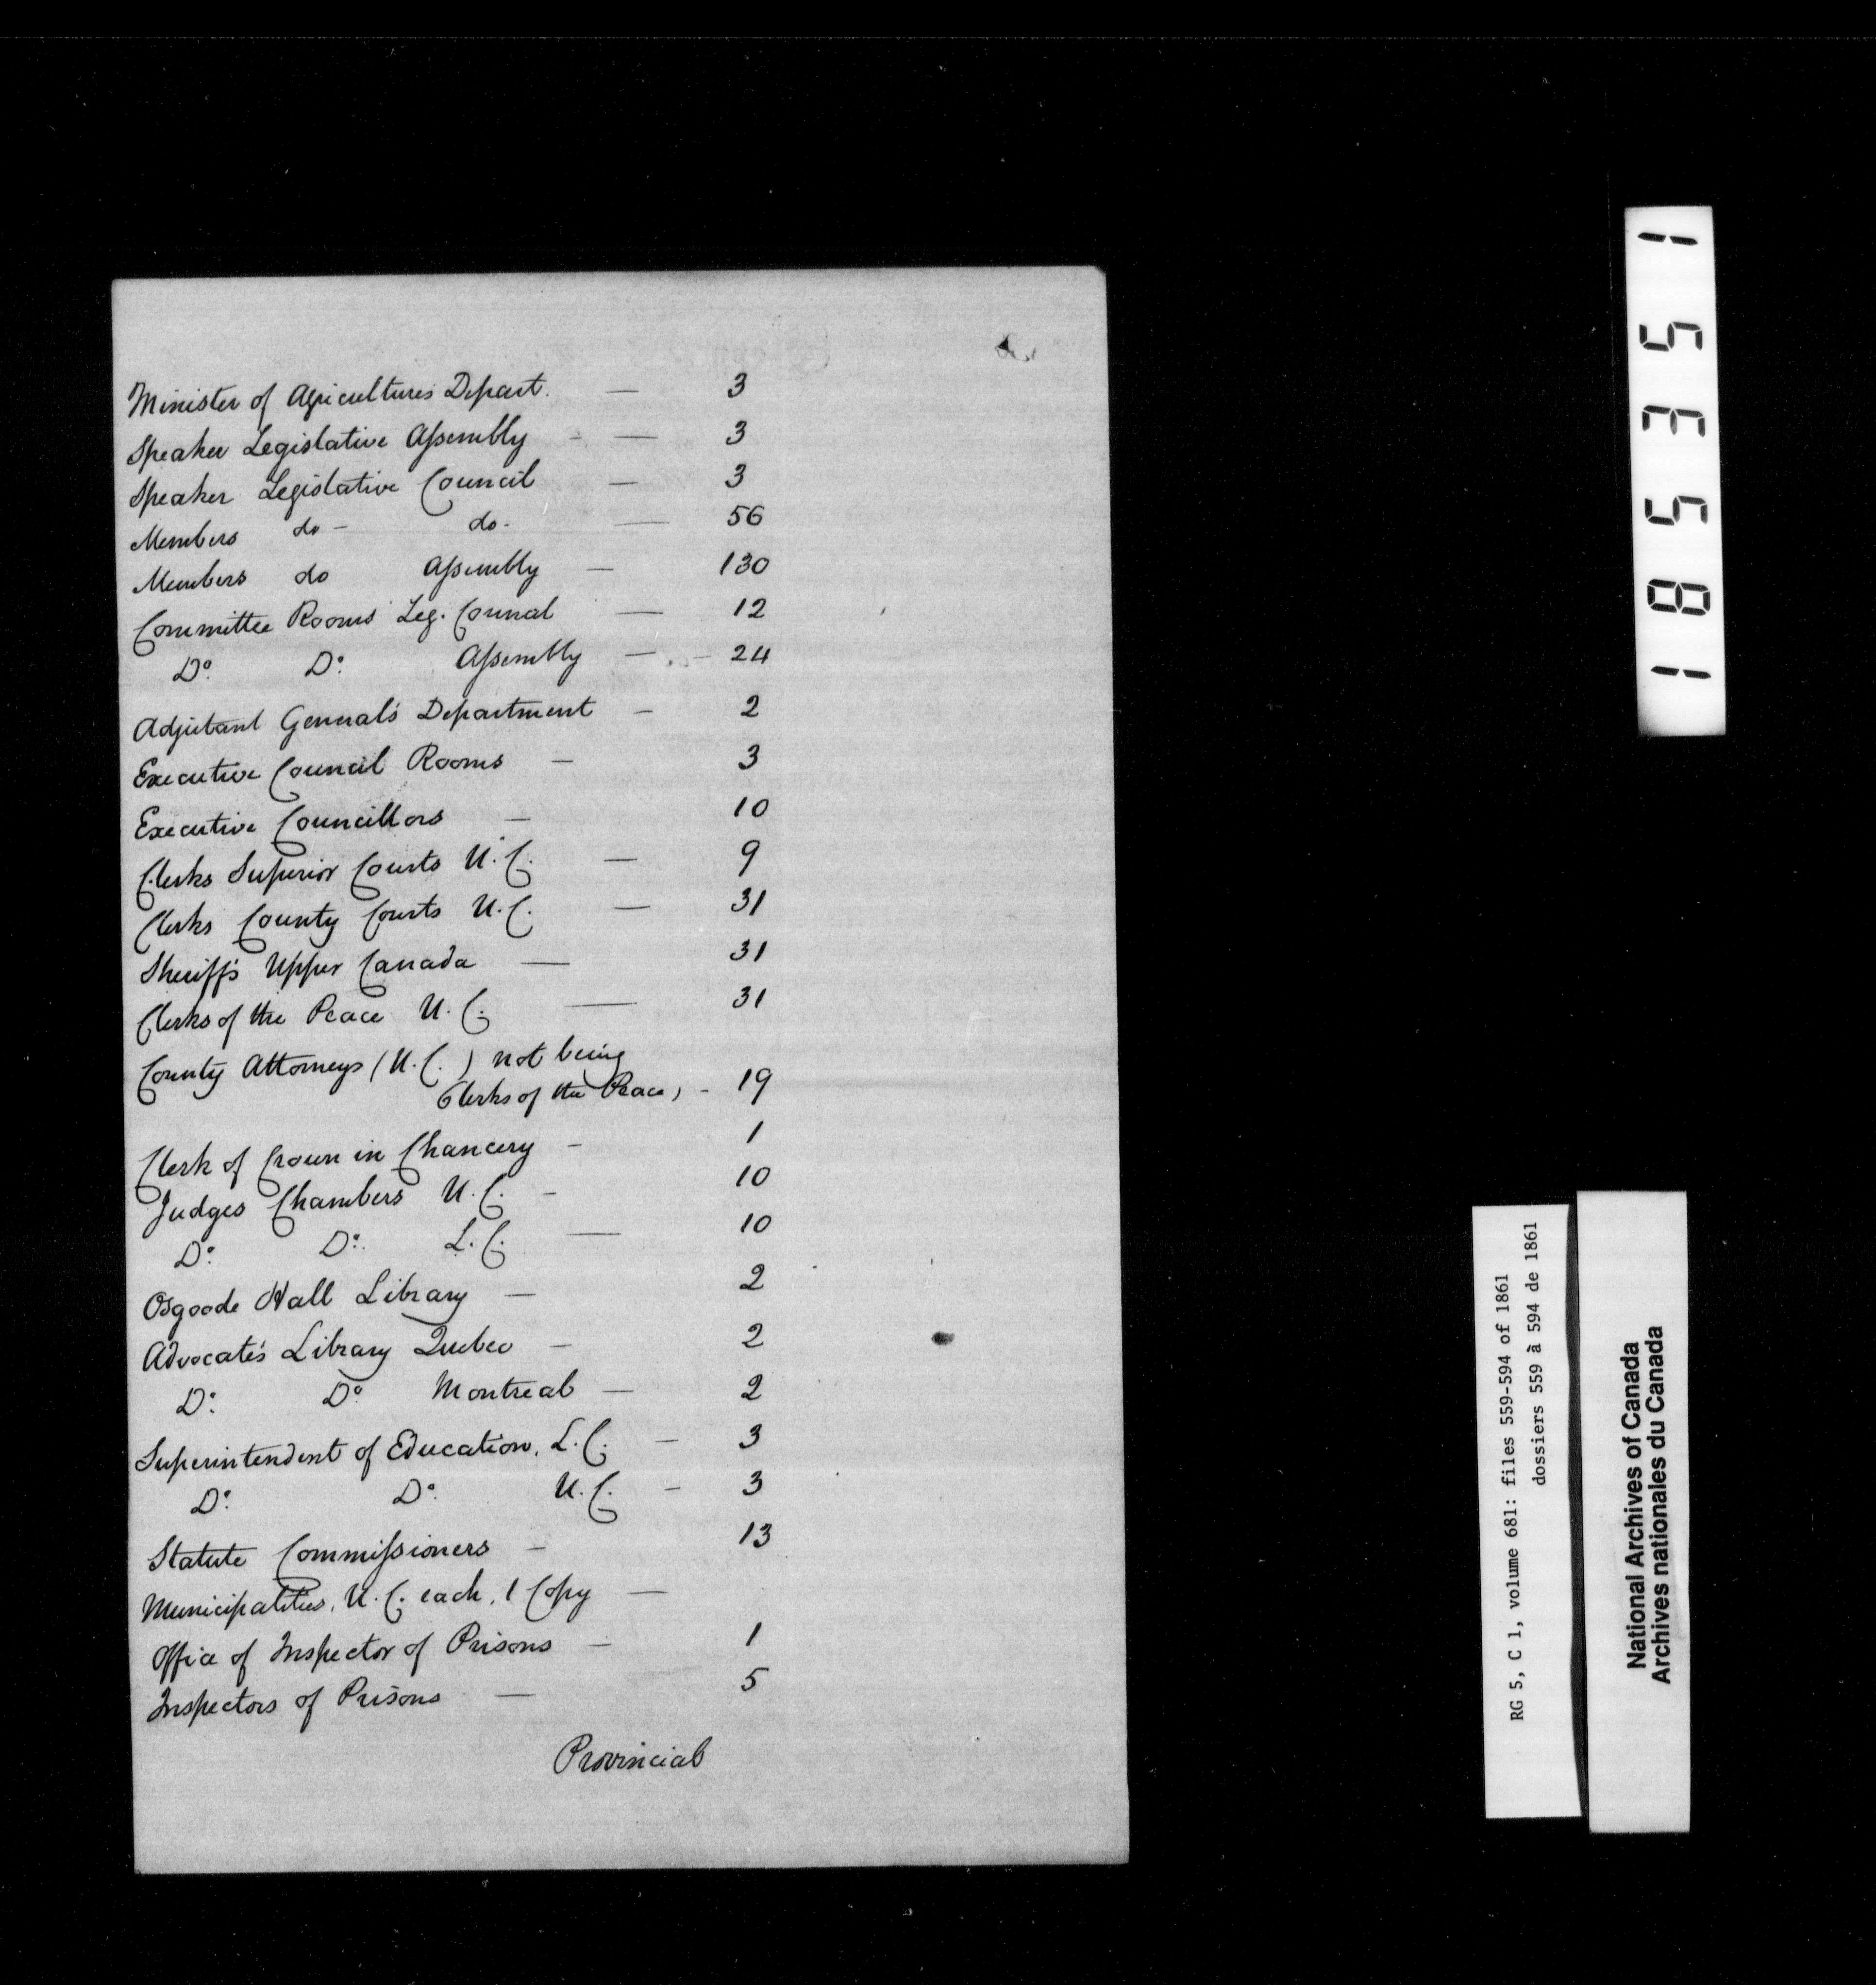 Minister of Agricultures Depart. — 3
Speaker Legislative Assembly - — 3
Speaker Legislative Council — 3
Members do - do - — 56
Members do Assembly — 130
Committee Rooms Leg. Counal — 12
Do. Do. Assembly — - 24
Adjutant General's Department — 2
Executive Council Rooms — 3
Executive Councillors — 10
Clerks Superior Courts U. C. — 9
Clerks County Courts U. C. — 31
Sheriff's Upper Canada — 31
Clerks of the Peace U. C. — 31
County Attorneys (U. C.) not being
Clerks of the Peace, - 19
Clerk of Crown in Chancery - 1
Judges Chambers U. C. - 10
Do. Do. L. C. — 10
Osgoode Hall Library — 2
Advocate's Library Quebec — 2
Do. Do Montreal — 2
Superintendent of Education, L. C. — 3
Do. Do. U. C. - 3
Statute Commissioners - 13
Municipalities, U. C. each, 1 Copy —
Office of Inspector of Prisons — 1
Inspectors of Prisons — 5
Provincial
RG 5, C 1, volume 681: files 559-594 of 1861
dossiers 559 à 594 de 1861
National Archives of Canada
Archives nationales du Canada
185351